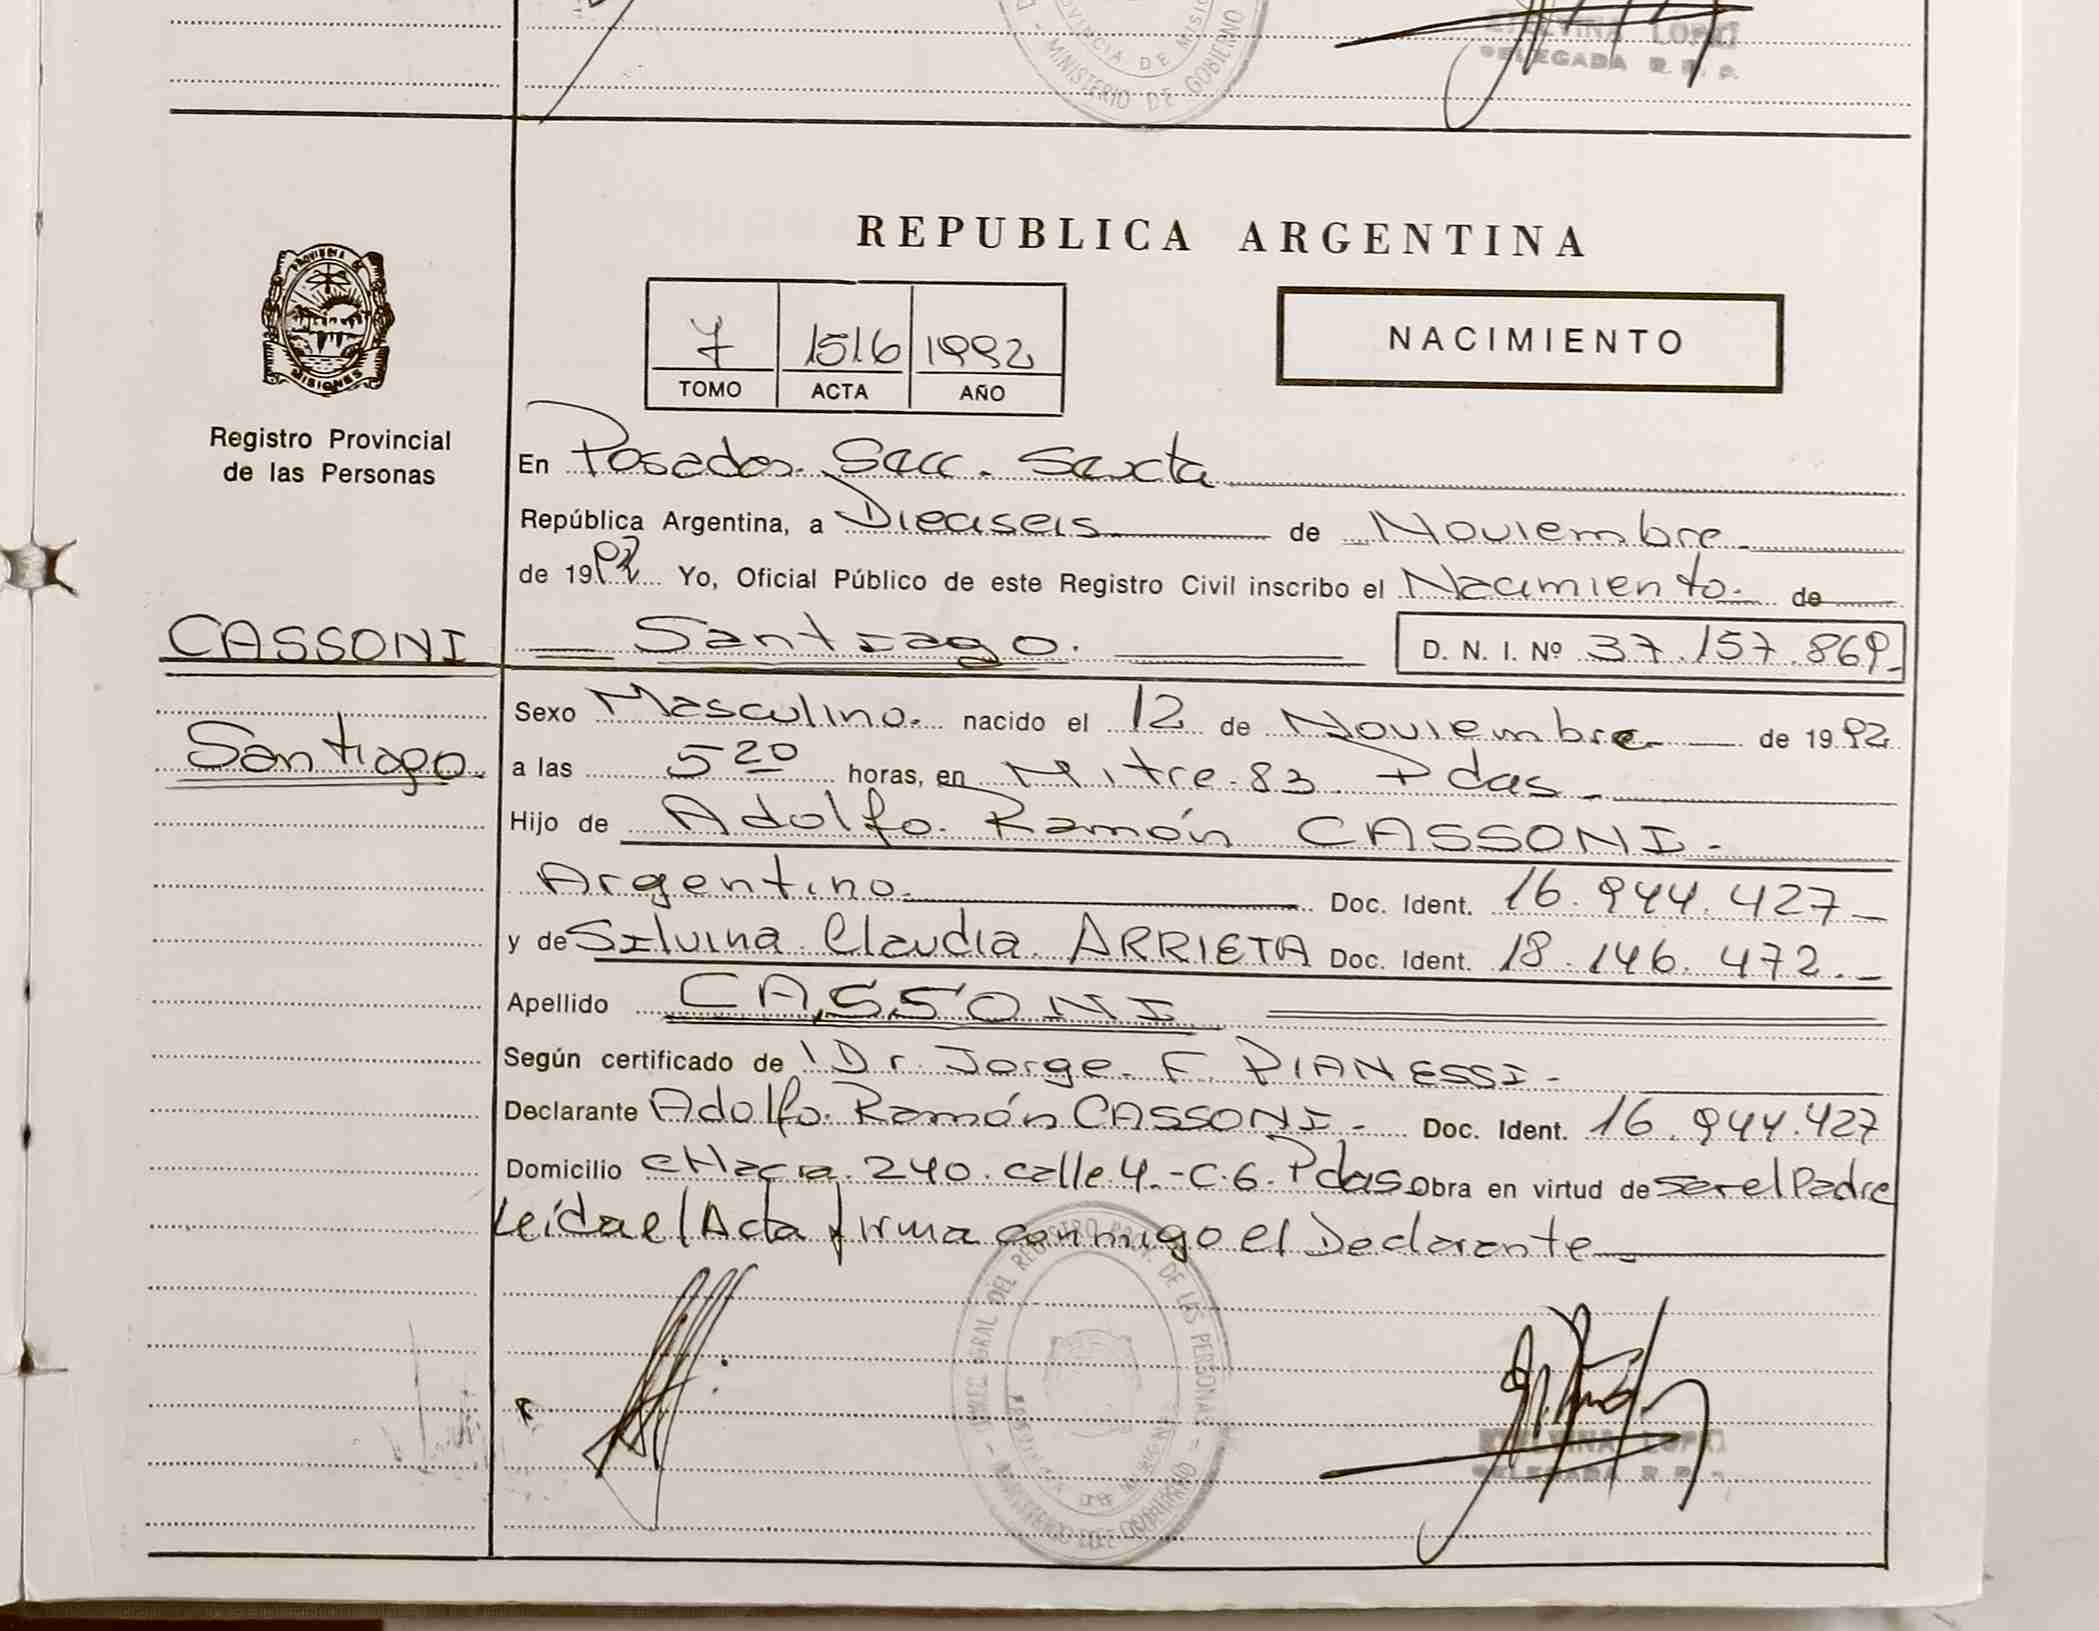 PROVINCIA DE MISIONES
MINISTERIO DE GOBIERNO
LOPEZ
DELEGADA R. P. P.
REPUBLICA ARGENTINA
PROVINCIA DE
MISIONES
7 1516 1992
TOMO ACTA AÑO
NACIMIENTO
Registro Provincial
de las Personas
En Posadas. Secc. Sexta
República Argentina, a Dieciseis de Noviembre
de 1992 Yo, Oficial Público de este Registro Civil inscribo el Nacimiento. de
CASSONI Santiago. D. N. I. Nº 37.157.869
Sexo Masculino. nacido el 12 de Noviembre de 1992
Santiago. a las 5 20 horas, en Mitre 83 Pdas
Hijo de Adolfo Ramón CASSONI.
Argentino. Doc. Ident. 16.944.427
y de Silvina Claudia ARRIETA Doc. Ident. 18.146.472.
Apellido CASSONI
Según certificado de Dr. Jorge F. PIANESSI
Declarante Adolfo Ramón CASSONI Doc. Ident. 16.944.427
Domicilio cHacra 240. calle 4 - C. 6. Pdas Obra en virtud de ser el Padre
Leída el Acta firma conmigo el Declarante
GRAL DEL REGISTRO DE LAS PERSONAS
LOPEZ
DELEGADA R. P.